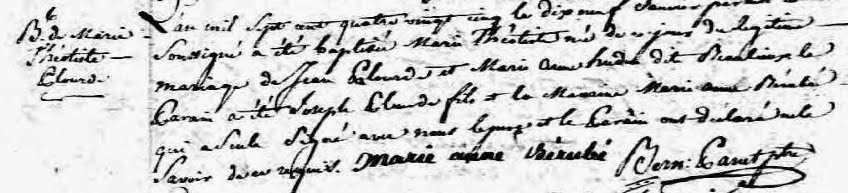 B. de Marie
Théotiste
Elourde
L'an mil Sept cent quatre vingt cinq le dix neuf Janvier par
Soussigné a été baptisée Marie Théotiste né de ce jour du légitime
mariage de Jean Elourde et Marie anne dit Beaulieu le
Parain a été Joseph Elourde fils et la Maraine Marie anne Bérubé
qui a Seule Signé avec nous le pere et le Parain ont déclaré ne le
Savoir de ce requis. Marie anne Bérubé Bern: Panet ptre